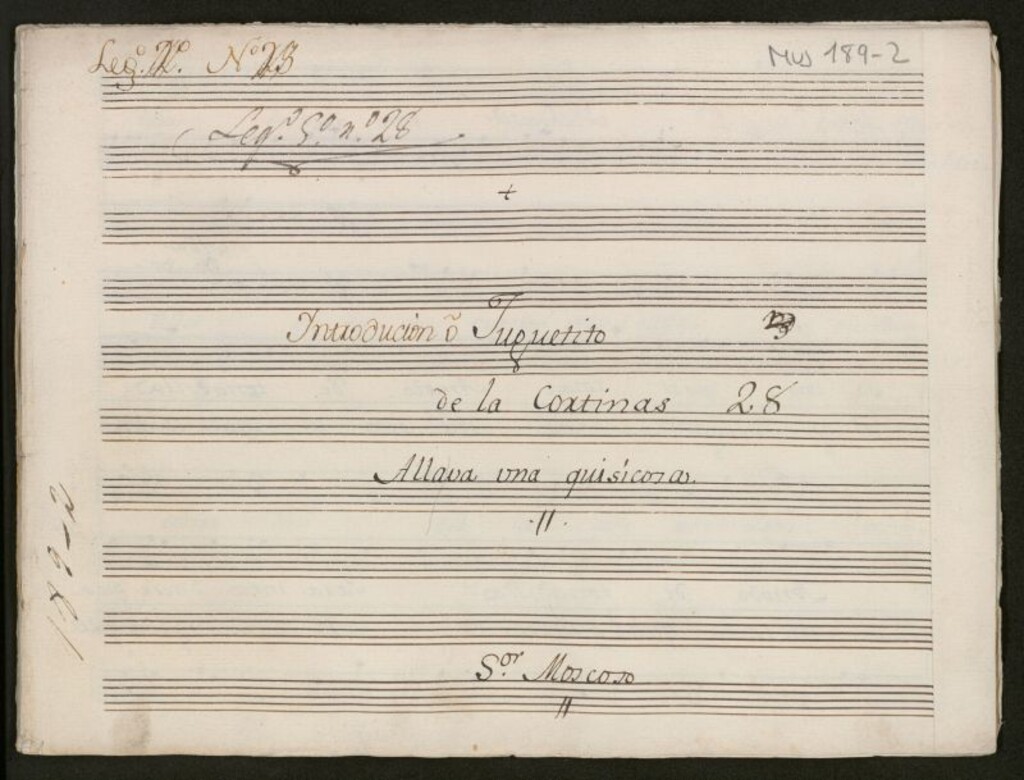 Leg.º 2º. Nº 23
Mus 189-2
Leg.º 5.º n.º 28
+
Introdución ó Juguetito
de la Cortinas 28
Allava vna quisicosa.
Sor. Moscoso
189-2